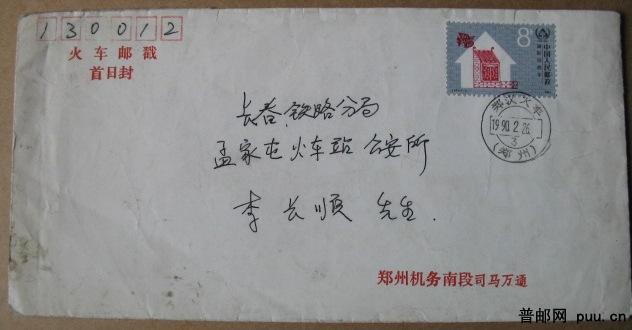 130012
火车邮戳
首日封
8分
中国人民邮政
郑汉火车
1990.2.26.
3
(郑州)
长春铁路分局
孟家屯火车站 公安所
李长顺 先生.
郑州机务南段司马万通
普邮网 puu.cn